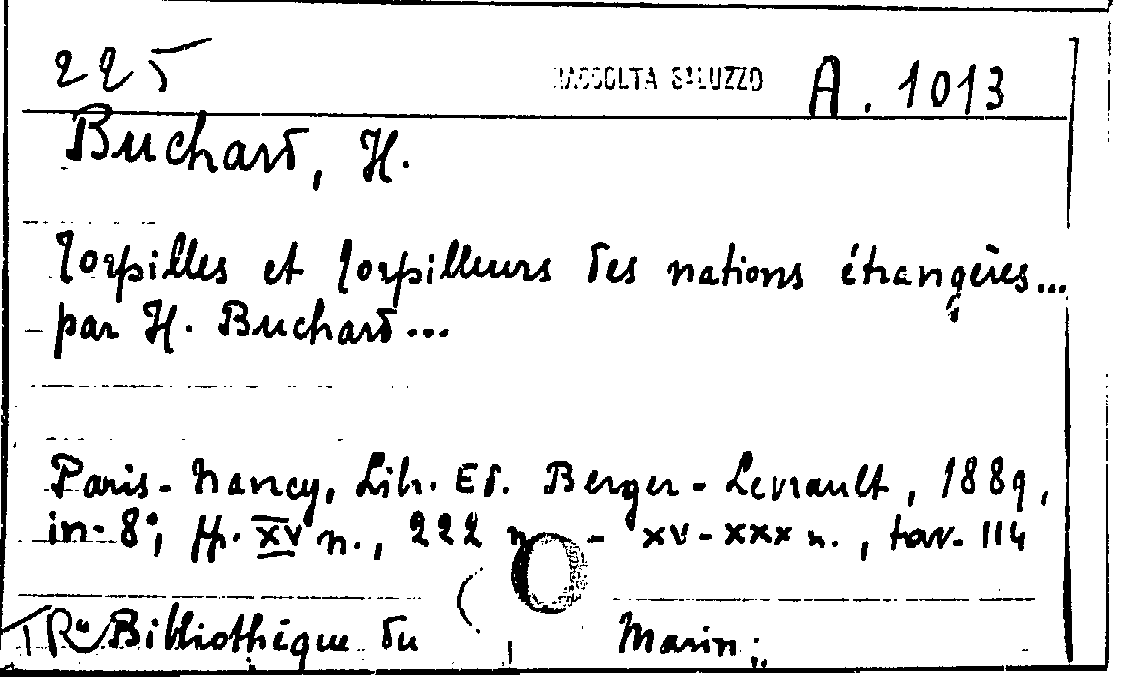 225 RACCOLTA SALUZZO A. 1013
Buchard, H.
Torpilles et Torpilleurs des nations étrangères...
par H. Buchard...
Paris-Nancy, Lib. Ed. Berger-Levrault, 1889,
in-8°; pp. XV n., 222 n. - XV-XXX n., tav. 114
Bibliothèque du Marin